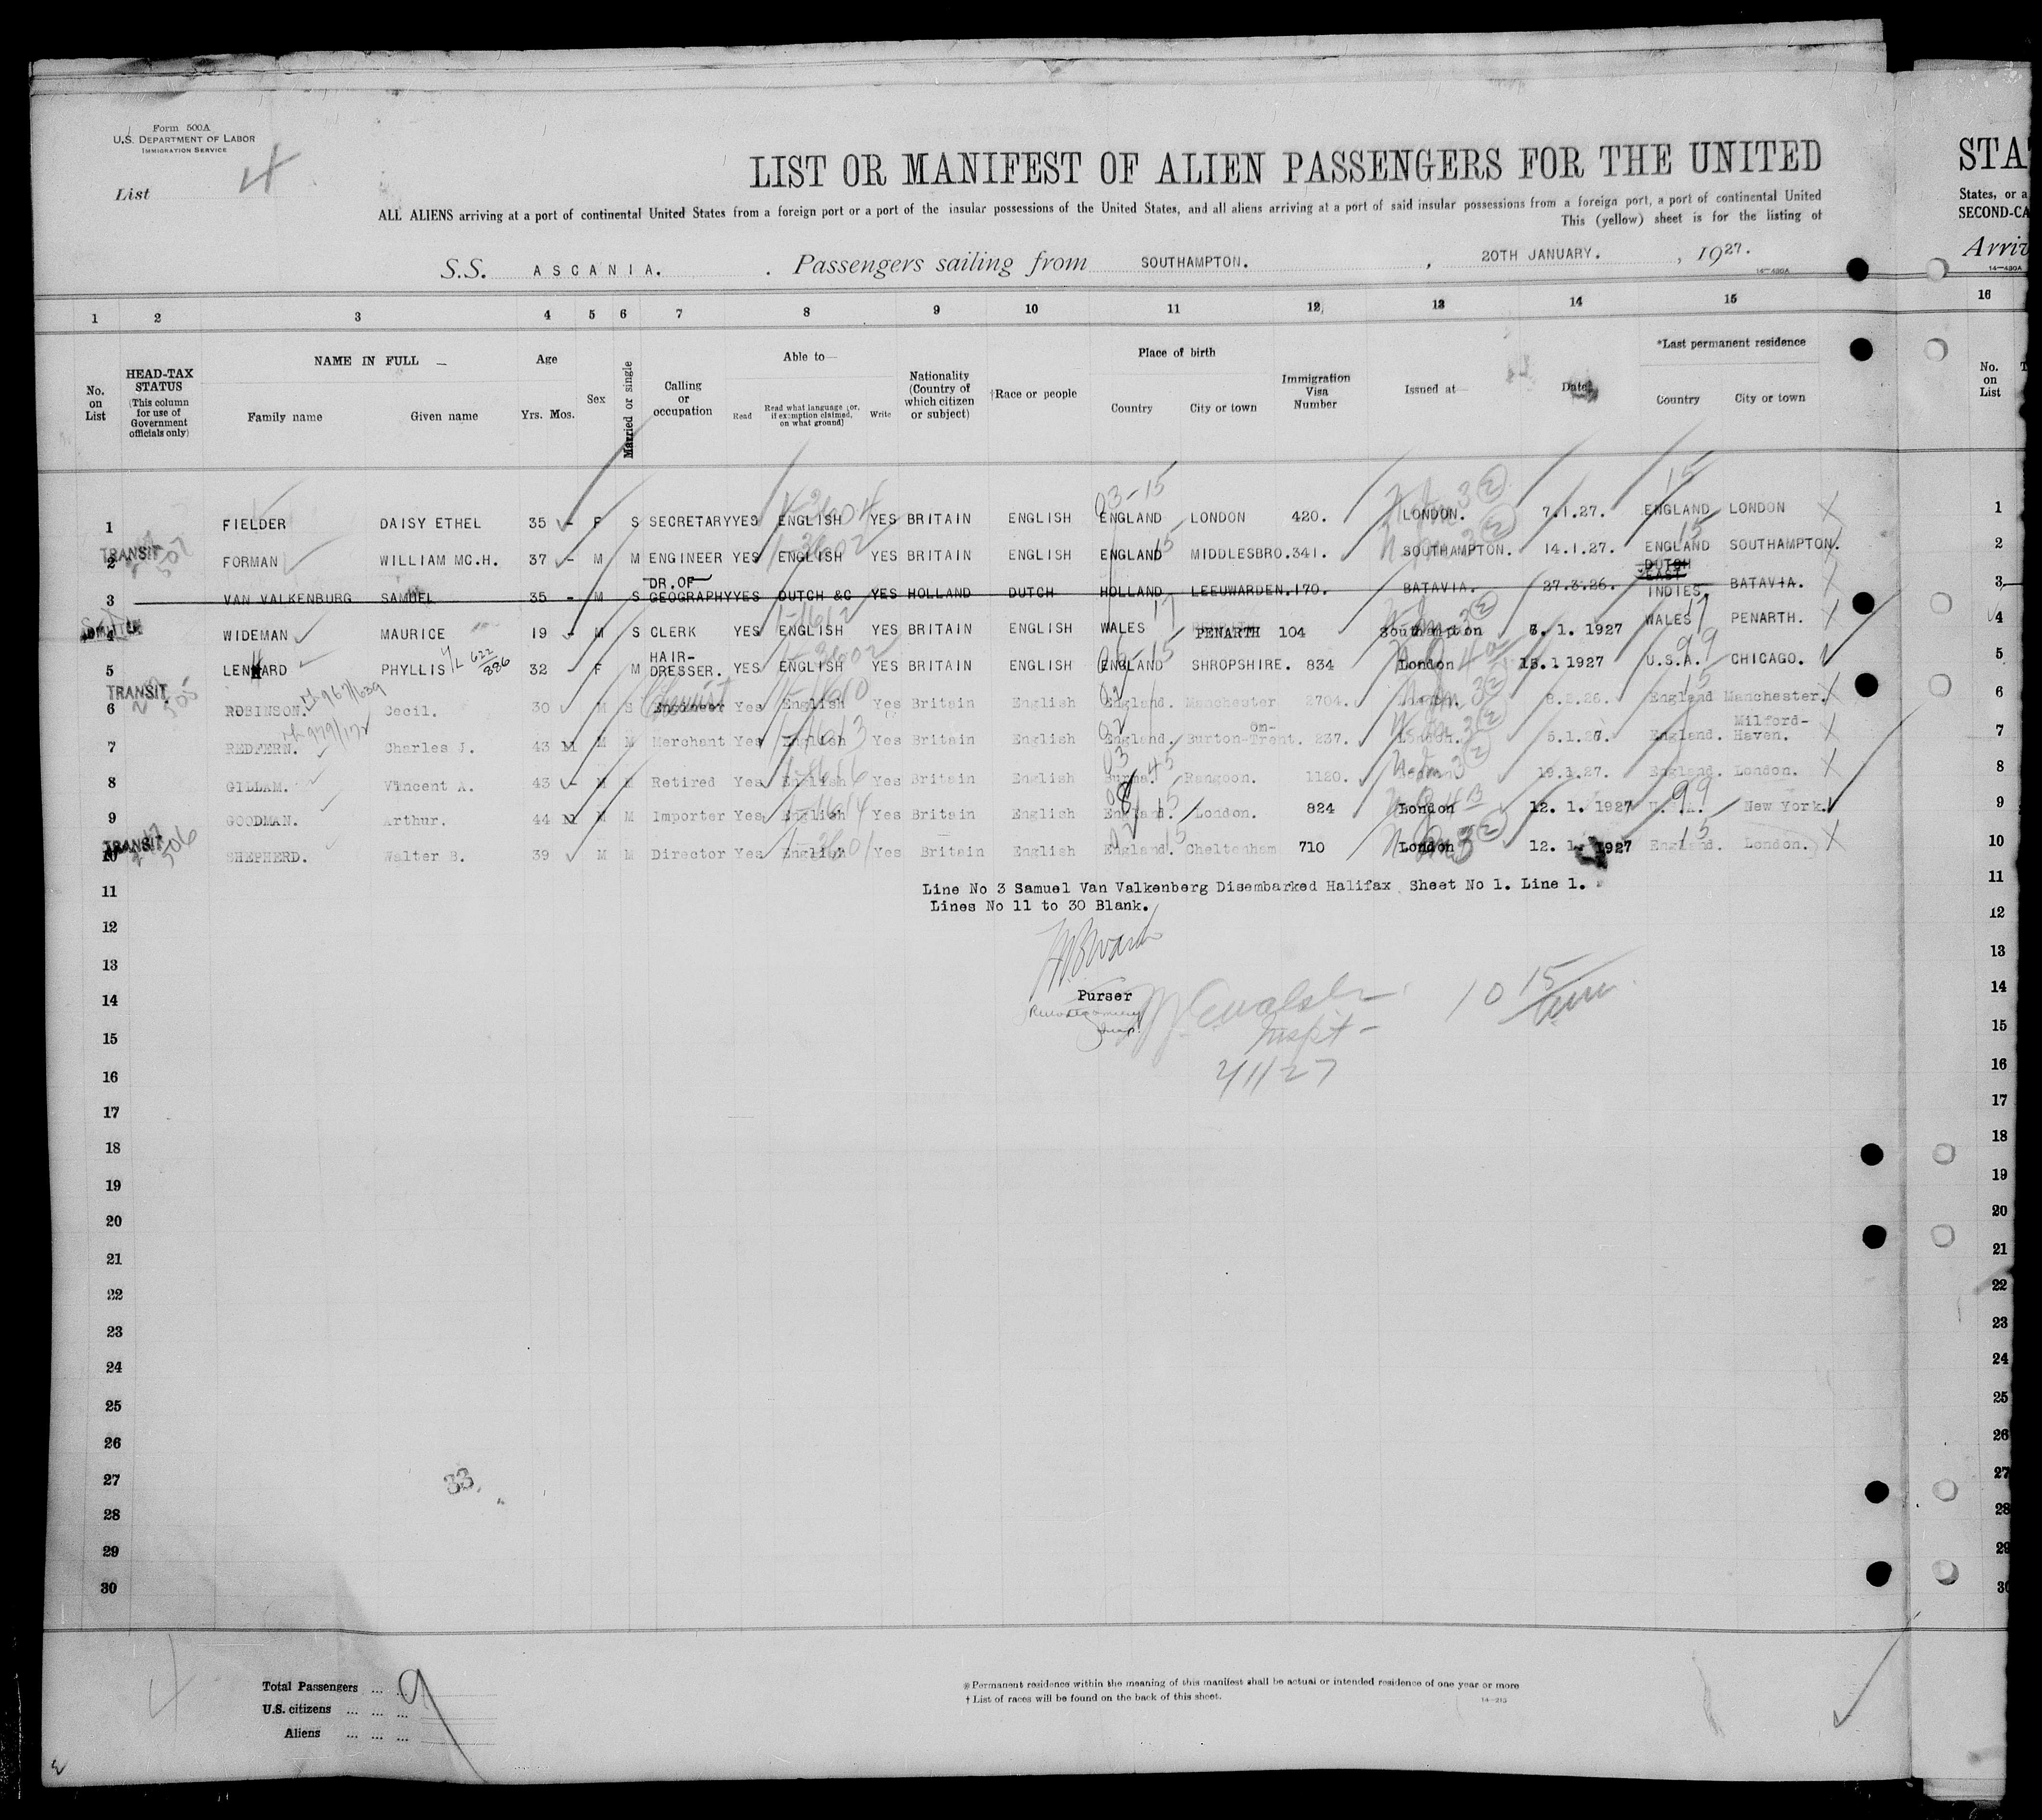 Form 500A
U.S. DEPARTMENT OF LABOR
IMMIGRATION SERVICE
List 4
LIST OR MANIFEST OF ALIEN PASSENGERS FOR THE UNITED
ALL ALIENS arriving at a port of continental United States from a foreign port or a port of the insular possessions of the United States, and all aliens arriving at a port of said insular possessions from a foreign port, a port of continental United
This (yellow) sheet is for the listing of
S.S. ASCANIA. Passengers sailing from SOUTHAMPTON. , 20TH JANUARY. , 1927.
14-480A
STA
States, or a
SECOND-CA
Arriv
14-480A
1 2 3 4 5 6 7 8 9 10 11 12 13 14 15 16
No. on List
HEAD-TAX STATUS (This column for use of Government officials only)
NAME IN FULL
Family name Given name
Age
Yrs. Mos.
Sex
Married or single
Calling or occupation
Able to—
Read Read what language (or, if exemption claimed, on what ground) Write
Nationality (Country of which citizen or subject)
†Race or people
Place of birth
Country City or town
Immigration Visa Number
Issued at—
Date
*Last permanent residence
Country City or town
No. on List
1 FIELDER DAISY ETHEL 35 - F S SECRETARY YES ENGLISH YES BRITAIN ENGLISH ENGLAND LONDON 420. LONDON. 7.1.27. ENGLAND LONDON 1
TRANSIT
2 FORMAN WILLIAM MC.H. 37 - M M ENGINEER YES ENGLISH YES BRITAIN ENGLISH ENGLAND MIDDLESBRO. 341. SOUTHAMPTON. 14.1.27. ENGLAND SOUTHAMPTON. 2
3 VAN VALKENBURG SAMUEL 35 - M S DR. OF GEOGRAPHY YES DUTCH &C YES HOLLAND DUTCH HOLLAND LEEUWARDEN. 170. BATAVIA. 27.3.26. DUTCH EAST INDIES. BATAVIA. 3
ADMITTED
4 WIDEMAN MAURICE 19 - M S CLERK YES ENGLISH YES BRITAIN ENGLISH WALES PENARTH 104 Southampton 6. 1. 1927 WALES PENARTH. 4
5 LENNARD PHYLLIS 32 - F M HAIR-DRESSER. YES ENGLISH YES BRITAIN ENGLISH ENGLAND SHROPSHIRE. 834 London 13.1 1927 U.S.A. CHICAGO. 5
TRANSIT
6 ROBINSON. Cecil. 30 M S Engineer Chemist Yes English Yes Britain English England. Manchester 2704. London. 8.2.26. England Manchester. 6
7 REDFERN. Charles J. 43 11 M M Merchant Yes English Yes Britain English England. Burton-on-Trent. 237. London. 5.1.27. England. Milford-Haven. 7
8 GILLAM. Vincent A. 43 - M M Retired Yes English Yes Britain English Burma. Rangoon. 1120. London 19.1.27. England. London. 8
9 GOODMAN. Arthur. 44 11 M M Importer Yes English Yes Britain English England. London. 824 London 12. 1. 1927 U.S.A. New York. 9
TRANSIT
10 SHEPHERD. Walter B. 39 M M Director Yes English Yes Britain English England. Cheltenham 710 London 12. 1. 1927 England. London. 10
11 Line No 3 Samuel Van Valkenberg Disembarked Halifax Sheet No 1. Line 1. 11
Lines No 11 to 30 Blank.
12 12
13 13
14 Purser 14
15 Inspt 15
16 2/1/27 16
17 17
18 18
19 19
20 20
21 21
22 22
23 23
24 24
25 25
26 26
27 33. 27
28 28
29 29
30 30
Total Passengers ... ... 9
U.S. citizens ... ... ...
Aliens ... ... ...
*Permanent residence within the meaning of this manifest shall be actual or intended residence of one year or more
† List of races will be found on the back of this sheet.
14-213